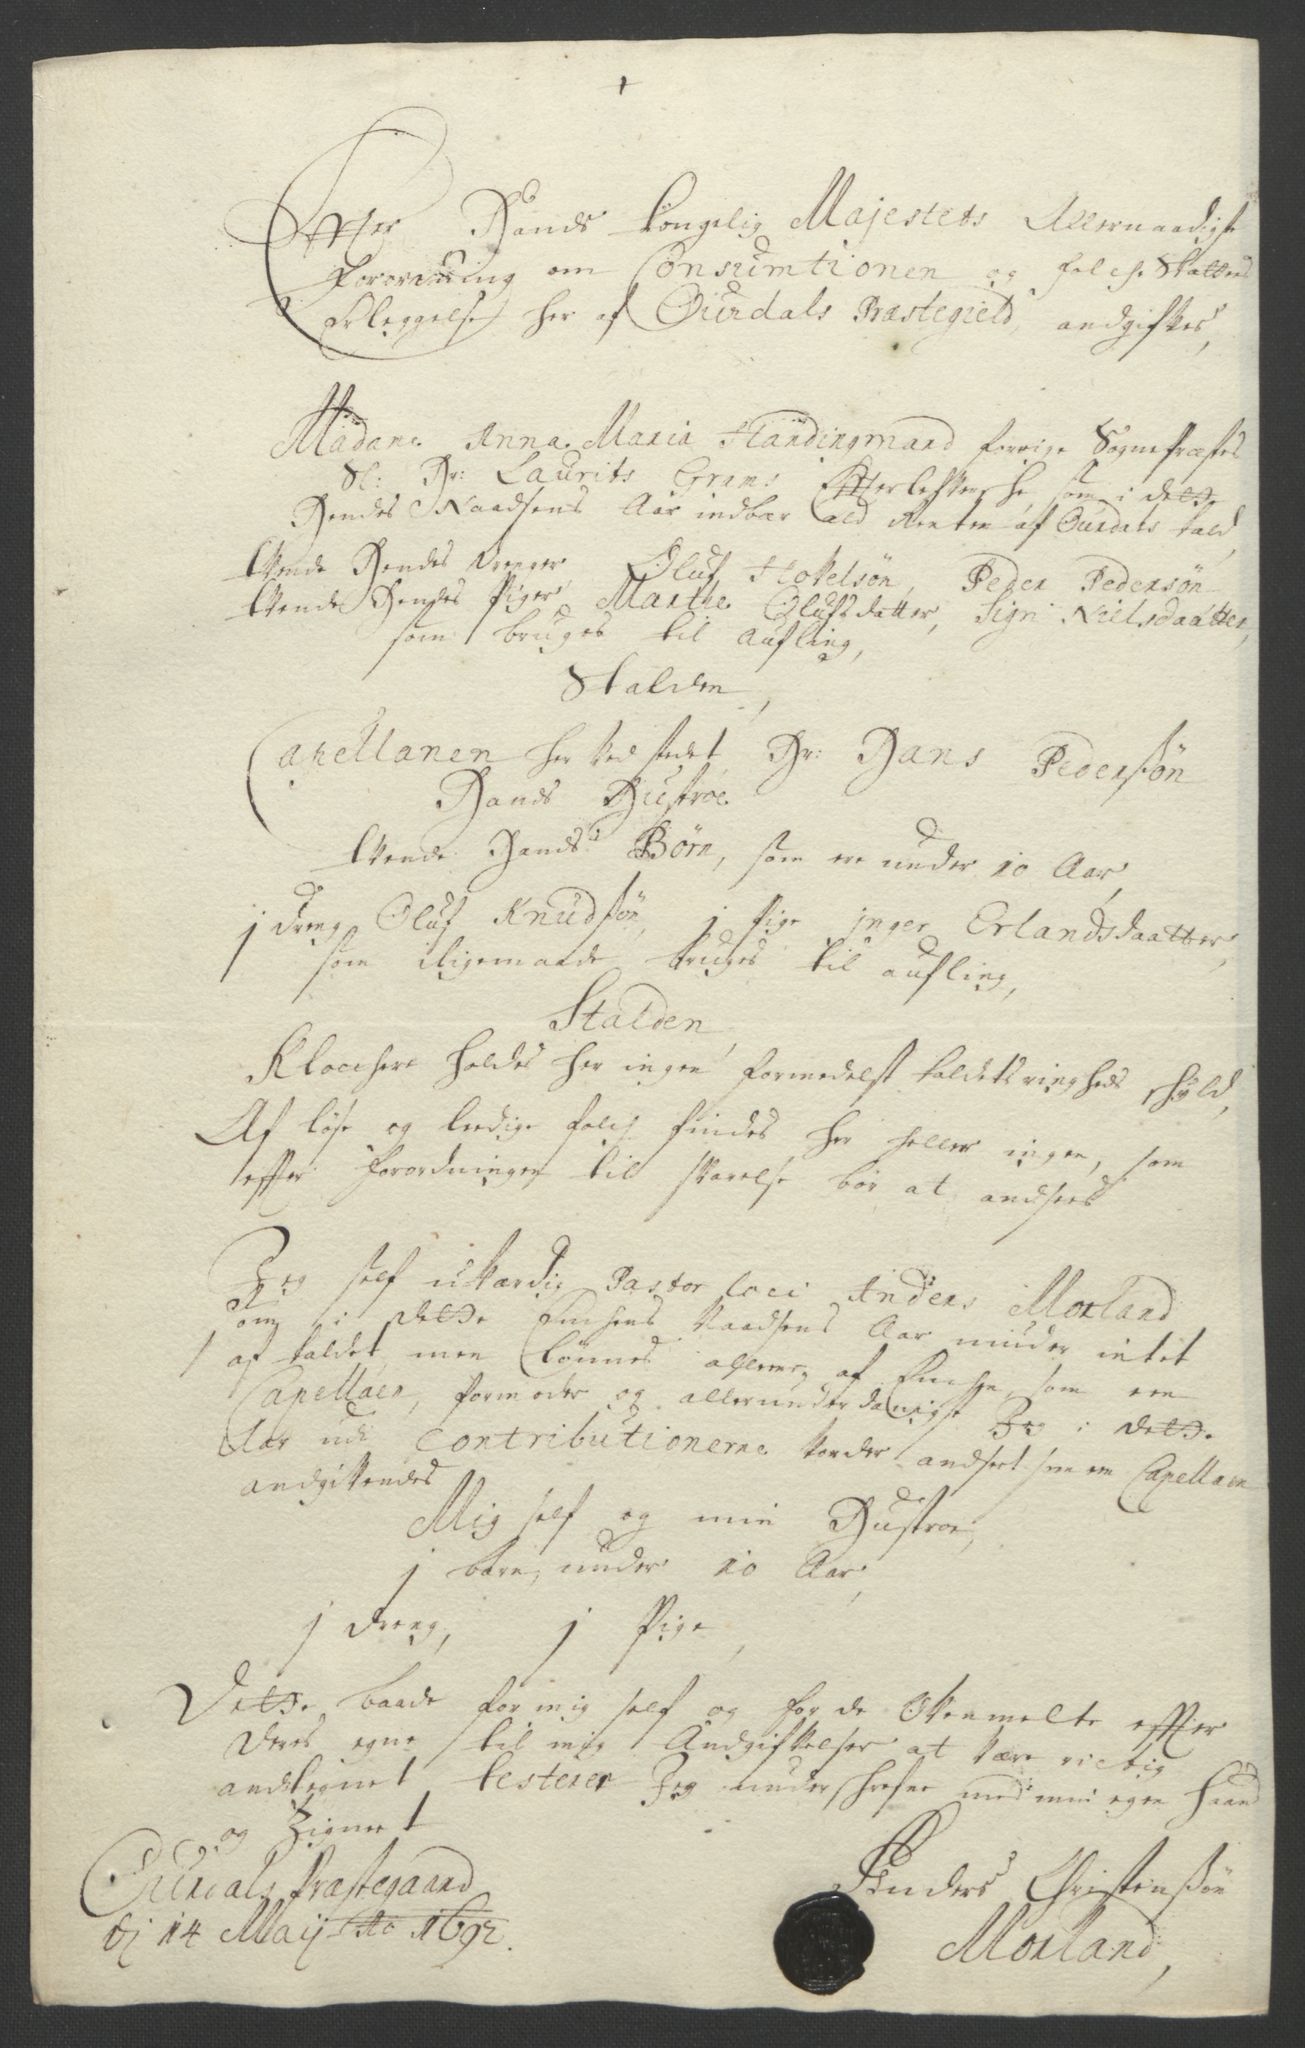 Effter Hands Kongelig Majestets Allernaadigste
Forordning om Consumtionen og folche Skattens
Erleggelse her af Ourdals Præstegield, andgifves,
Madame Anna Maria Handingmand forrige Sognepræstes
Sl: Hr: Laurits Grams Effterlefversche, som i dette
Hendes Naadsens Aar indbær ald Renten af Ourdals kald,
tvende Hendes Drenger Oluf Hovelsøn, Peder Pedersøn
tvende Hendes Piger Marthe Olufsdatter, Sigri Nielsdaatter,
som bruges til Aufling,
Stalden,
Capellanen her ved stedet Hr: Hans Pedersøn
Hands Hustroe
tvende Hands Børn, som ere under 10 Aar,
j dreng Oluf Knudsøn, j Pige jnger Erlandsdaatter,
som ligemaade bruges til aufling,
Stalden,
Klochere holdes her ingen formedelst kaldets ringheds skyld,
Af løse og ledige folch findes her heller ingen, som
effter forordningen til skarelse bør at andsees
Jeg self uverdig Pastor loci Anders Morland
som i dette Enchens Naadsens Aar niuder intet
af kaldet, men lønnes alleene af Enchen, som een
Capellaen, formoder og allerunderdanigst Jeg i dette
Aar udi Contributionerne vorder andseet som een Capellaen
andgifvendes
Mig self og min Hustroe,
j barn, under 10 Aar,
j dreng, j Pige,
Dette baade for mig self og for de Ofvenmelte effter
deres egne til mig Andgifvelser at være rictig
andtegnet testerer Jeg under skrefne med min egen Haand
og Zignet
Ourdals Præstegaard
dj 14 Maij Ao 1692.
Anders Christensøn
Morland,